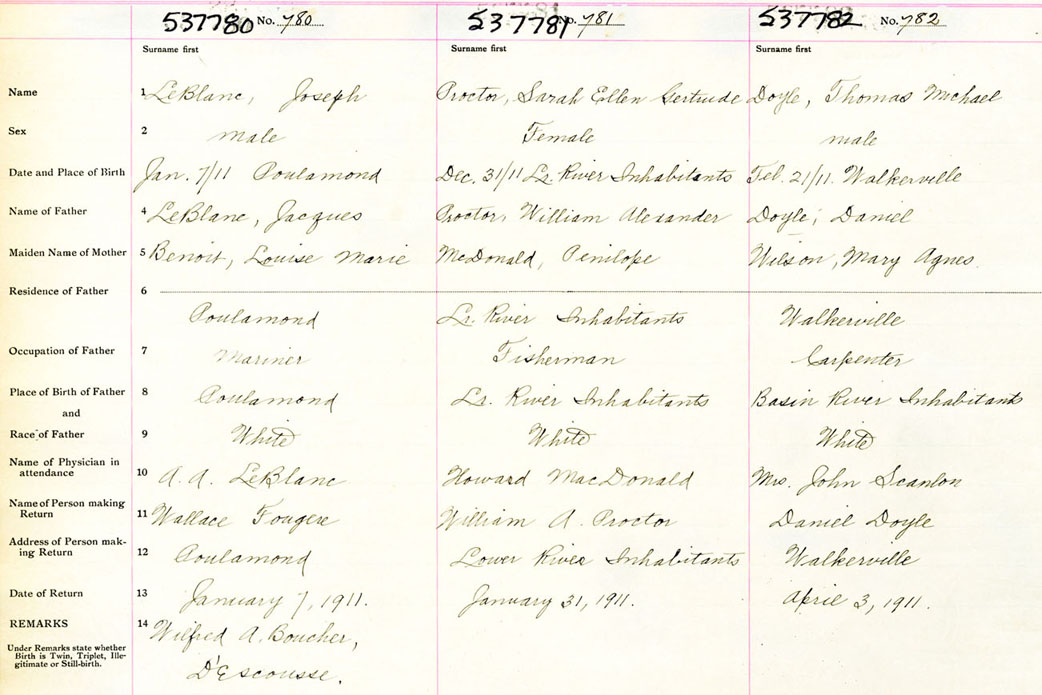 537780 No. 780 537781 No. 781 537782 No. 782
Surname first Surname first Surname first
Name 1 LeBlanc, Joseph Proctor, Sarah Ellen Gertrude Doyle, Thomas Michael
Sex 2 male Female male
Date and Place of Birth Jan. 7/11 Poulamond Dec. 31/11 Lr. River Inhabitants Feb. 21/11. Walkerville
Name of Father 4 LeBlanc, Jacques Proctor, William Alexander Doyle, Daniel
Maiden Name of Mother 5 Benoit, Louise Marie McDonald, Penilope Wilson, Mary Agnes
Residence of Father 6
Poulamond Lr. River Inhabitants Walkerville
Occupation of Father 7 Mariner Fisherman Carpenter
Place of Birth of Father 8 Poulamond Lr. River Inhabitants Basin River Inhabitants
and
Race of Father 9 White White White
Name of Physician in
attendance 10 A. A. LeBlanc Howard MacDonald Mrs. John Scanlon
Name of Person making
Return 11 Wallace Fougere William A. Proctor Daniel Doyle
Address of Person mak-
ing Return 12 Poulamond Lower River Inhabitants Walkerville
Date of Return 13 January 7, 1911. January 31, 1911. April 3, 1911.
REMARKS 14 Wilfred A. Boucher,
Under Remarks state whether
Birth is Twin, Triplet, Ille-
gitimate or Still-birth.
D'Escousse.